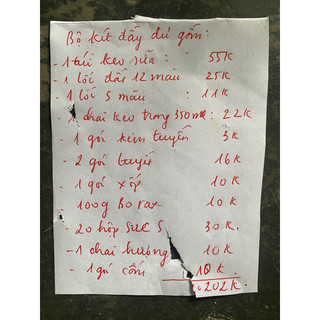 Bộ kít đầy đủ gồm:
- 1 túi keo sữa : 55K
- 1 lốc đất 12 màu 25K
1 lốc 5 màu : 11K
1 chai keo trong 350ml : 22K
- 1 gói kim tuyến 3K
- 2 gói tuyết 16K
- 1 gói xốp 10K
100g Borax 10K
- 20 hộp size S 30K.
- 1 chai hương 10K
- 1 gói cốm 10K.
202K.